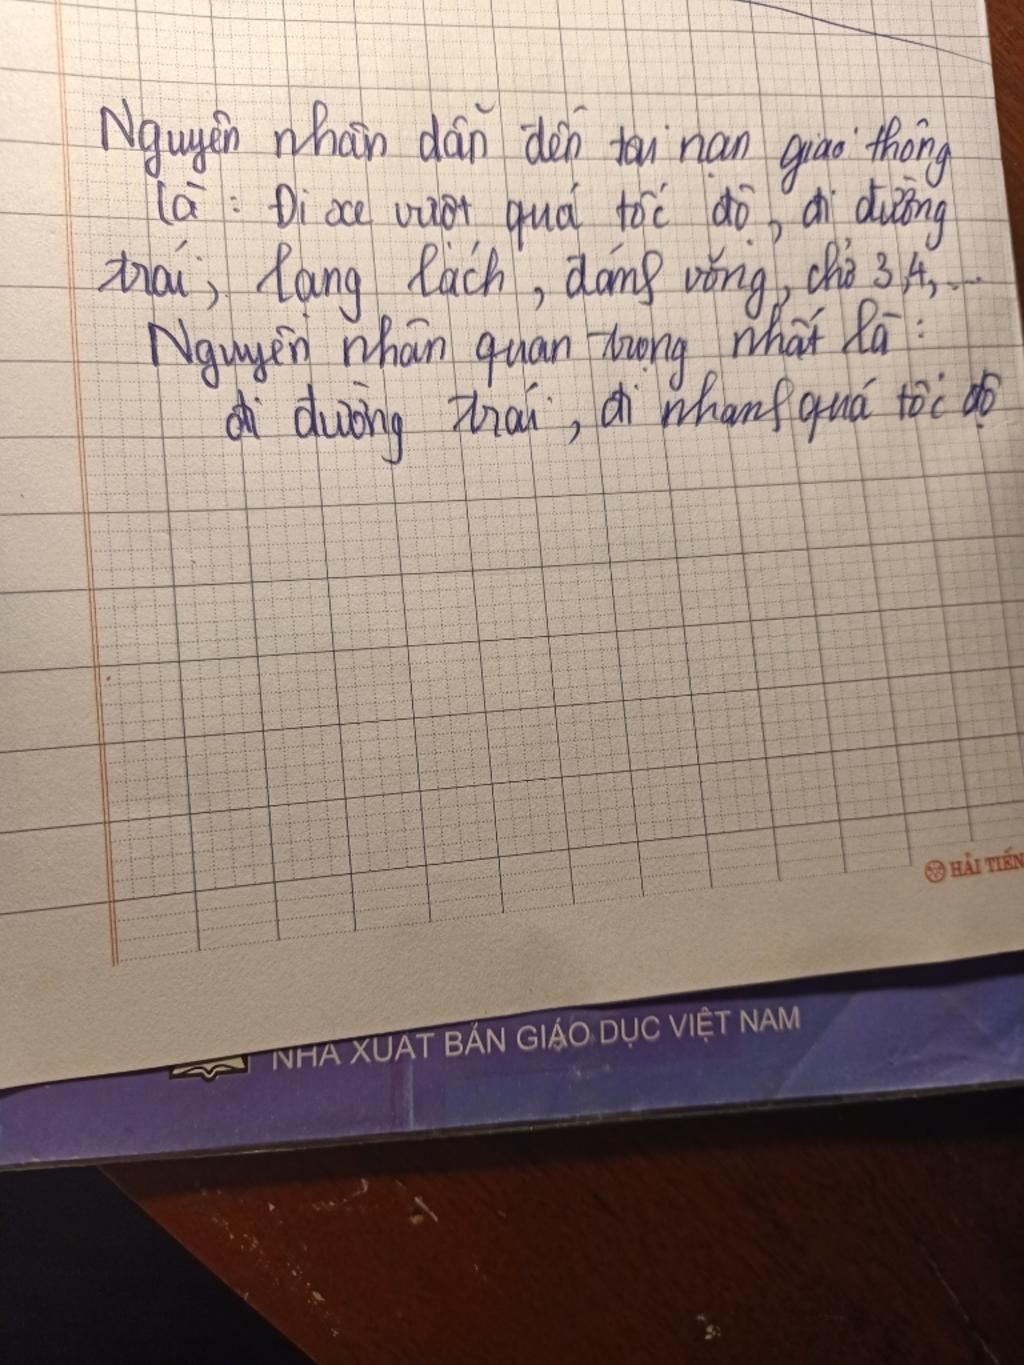 Nguyên nhân dẫn đến tai nạn giao thông
là : Đi xe vượt quá tốc độ, đi đường
trái, lạng lách, đánh võng, chở 3,4,...
Nguyên nhân quan trọng nhất là :
đi đường trái, đi nhanh quá tốc độ
HẢI TIẾN
NHÀ XUẤT BẢN GIÁO DỤC VIỆT NAM